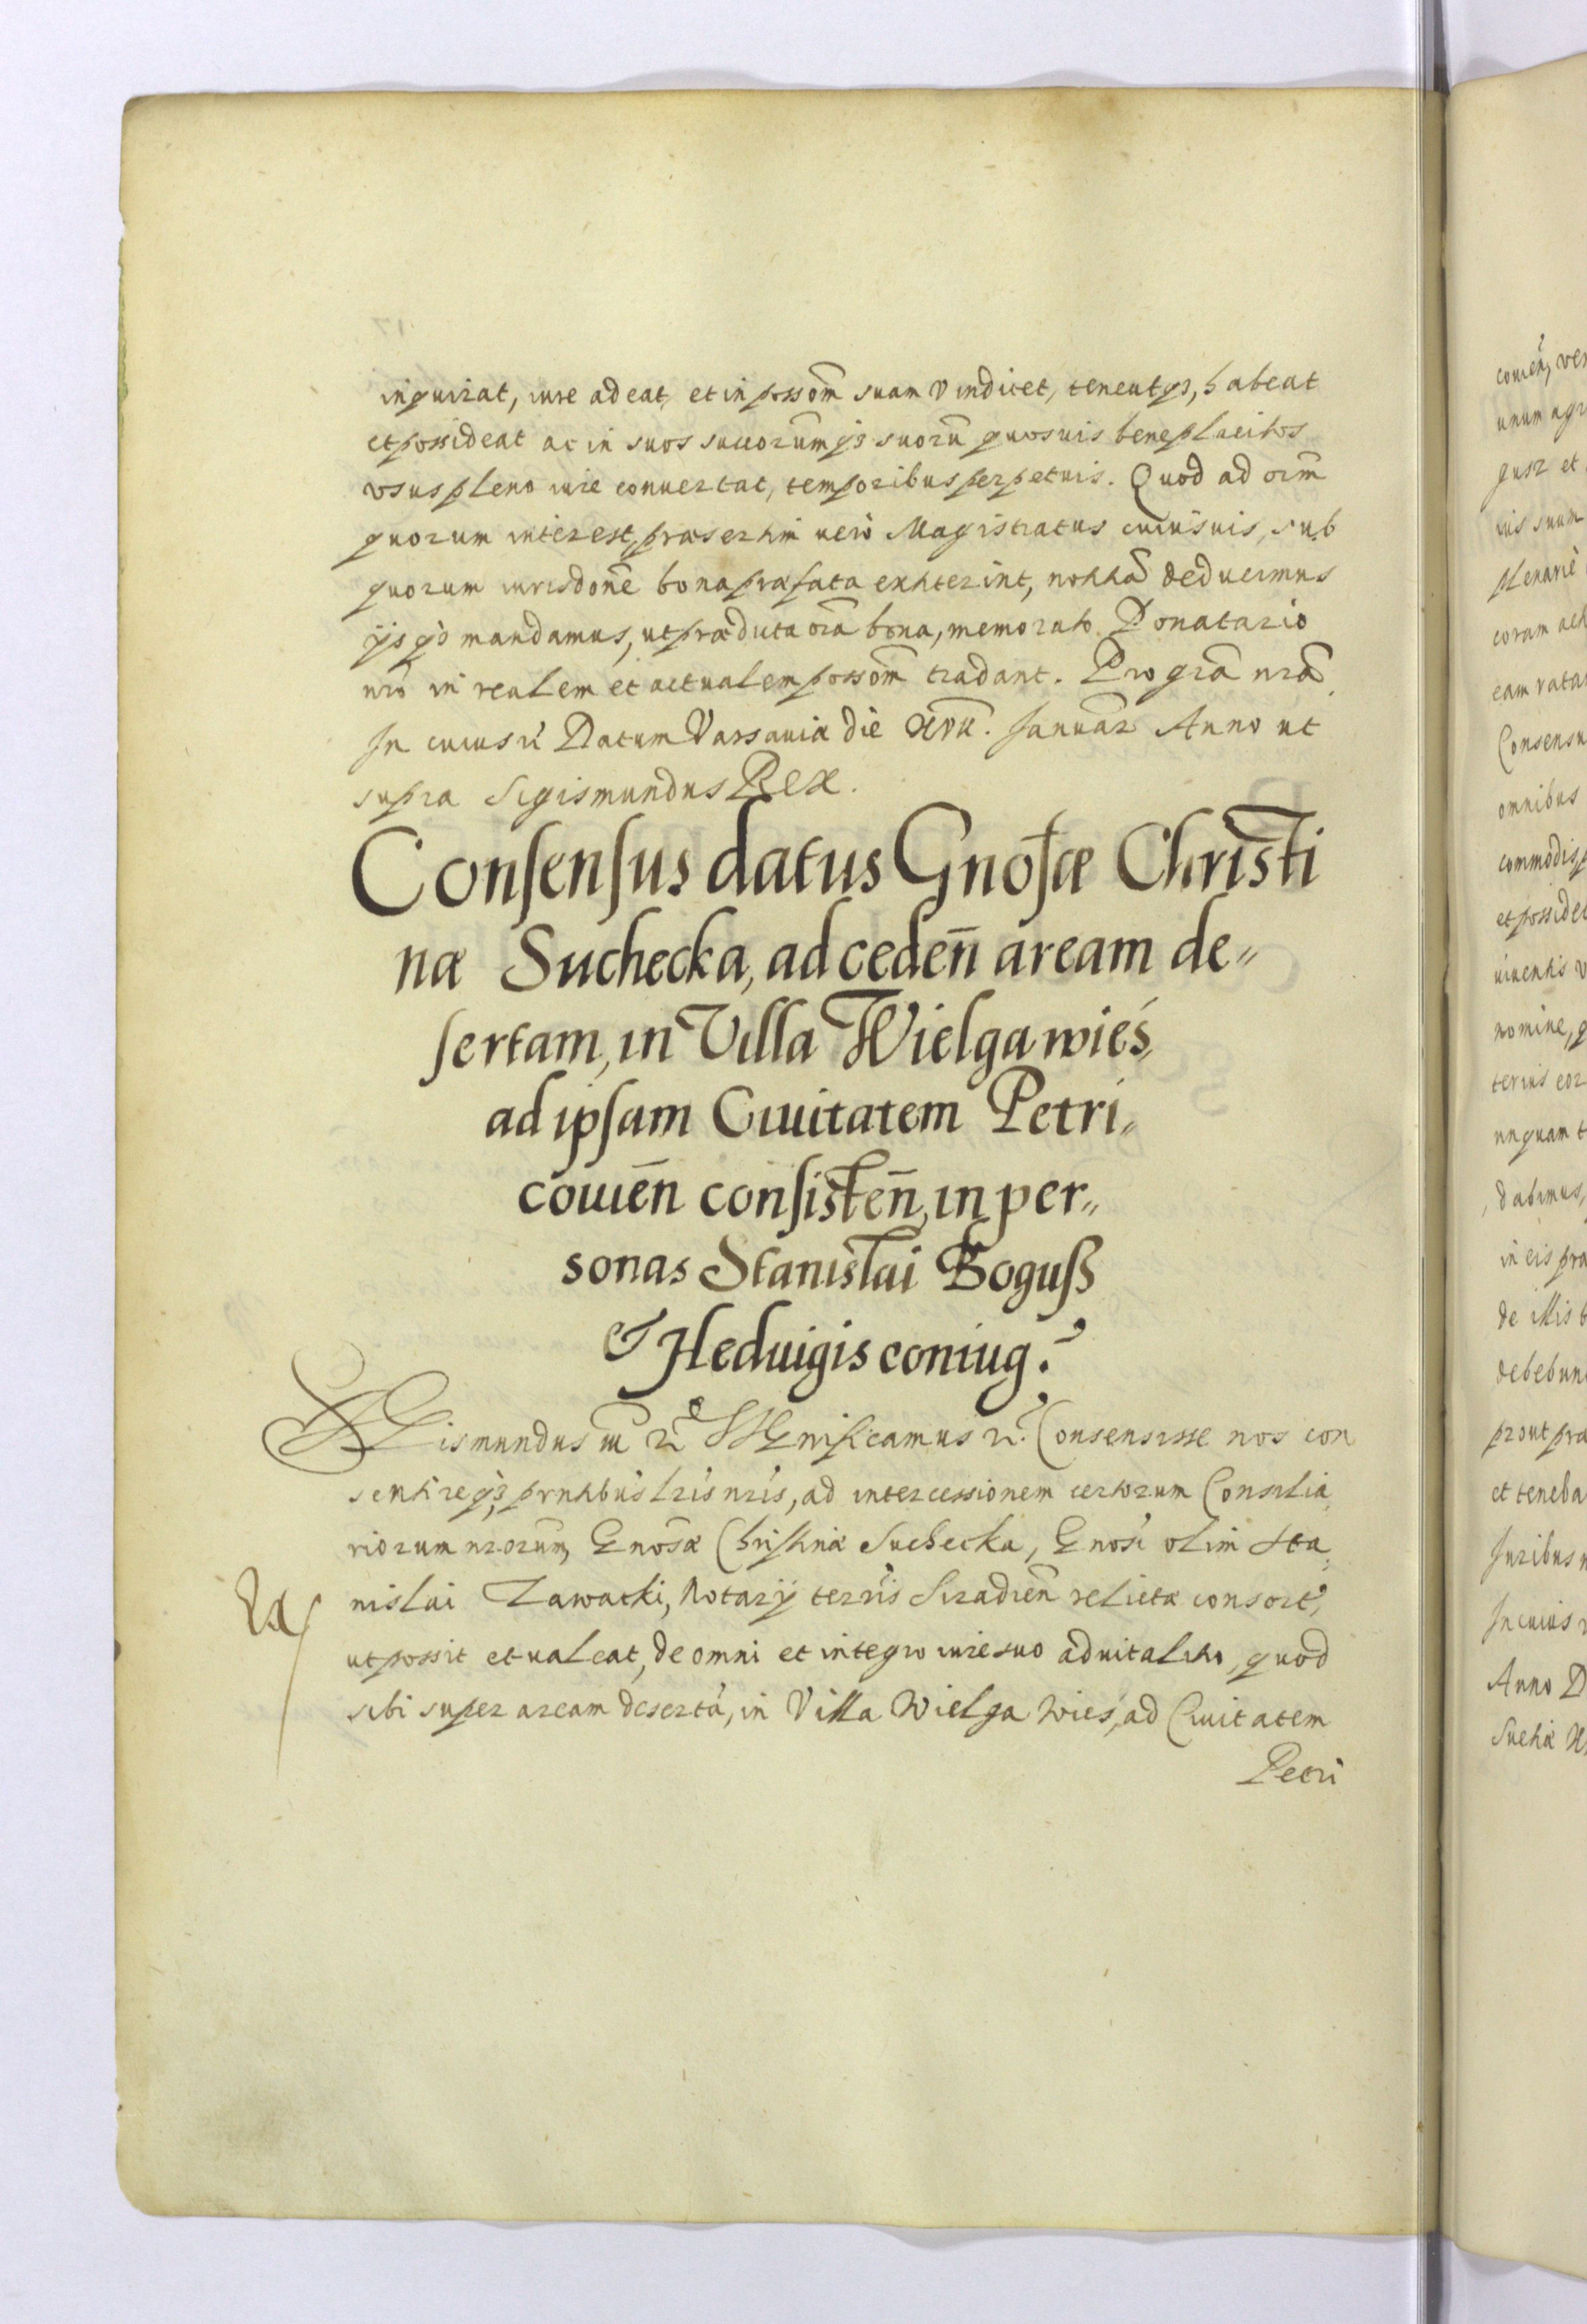 inquirat, iure adeat, et in possõm suam vindicet, teneatqȝ, habeat
et possideat ac in suos succorũmqȝ suorũ quosuis beneplacitos
vsus pleno iure conuertat, temporibus perpetuis. Quod ad oĩm
quorum interest, præsertim uerò Magistratus cuiusuis, sub
quorum iurisdoñe bona præfata extiterint, notitiã deducimus
ijsqȝ mandamus, ut prædicta oĩa bona, memorato Donatario
nrõ in realem et actualem possõm tradant. Pro grã nrã
In cuius rĩ Datum Varsauiæ die XVII. Januar Anno ut
supra Sigismundus Rex.
Consensus datus Gnosæ Christi
næ Suchecka, ad cedeñ aream de„
sertam, in Villa Wielga wieś,
ad ipsam Ciuitatem Petri„
couieñ consisteñ, in per„
sonas Stanislai Boguß
& Heduigis coniug.
SIGismundus III &c̃ SIGnificamus &c̃. Consensisse nos con
sentireqȝ, prntibus lrĩs nrĩs, ad intercessionem certorum Consilia„
riorum nrorũm, Gnosæ Christinæ Suchecka, Gnosi olim Sta„
nislai Zawacki, Notarij terrĩs Siradieñ relictæ consort,
ut possit et ualeat, de omni et integro iure suo aduitalitio, quod
sibi super aream desertã, in Villa Wielga Wieś, ad Ciuitatem
Petri
couieñ,
unum agr
et
uis suum
plenariè
coram act
eam rata
Consensu
omnibus
commodis
et possidet
uiuentis v
nomine, q
terius eor
unquam t
dabimus,
in eis præ
de illis b
debebun
prout præ
et teneba
Juribus n
In cuius r
Anno D